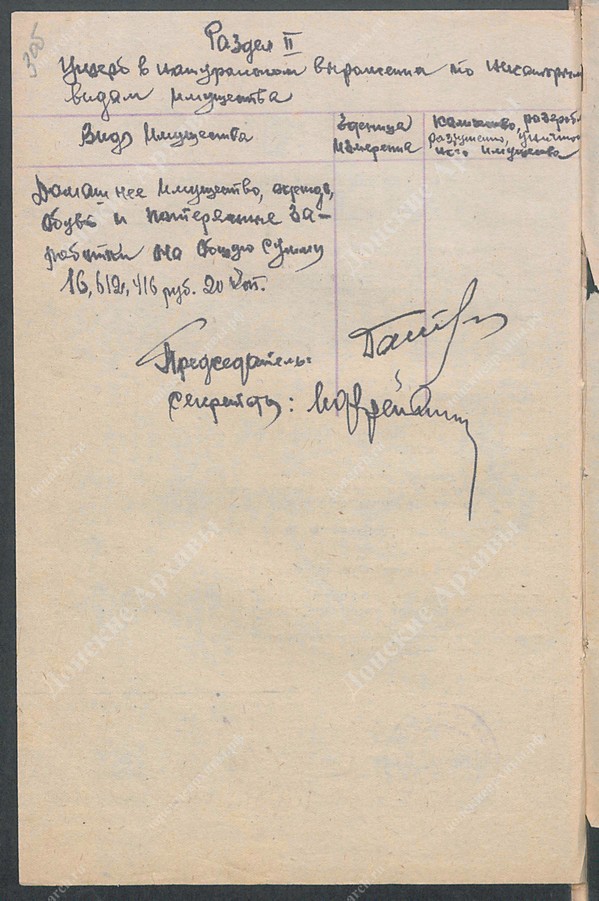 Раздел II
Ущерб в натуральном выражении по некоторым
видам имущества
Виды имущества
Единица
измерения
Количество, разграбл.
разрушено,
ного имущества
Домашнее имущество, одежда,
обувь и потерянные за-
работки на общую сумму
16,612,416 руб. 20 коп.
Председатель:
Секретарь:
Донские Архивы
Донские Архивы